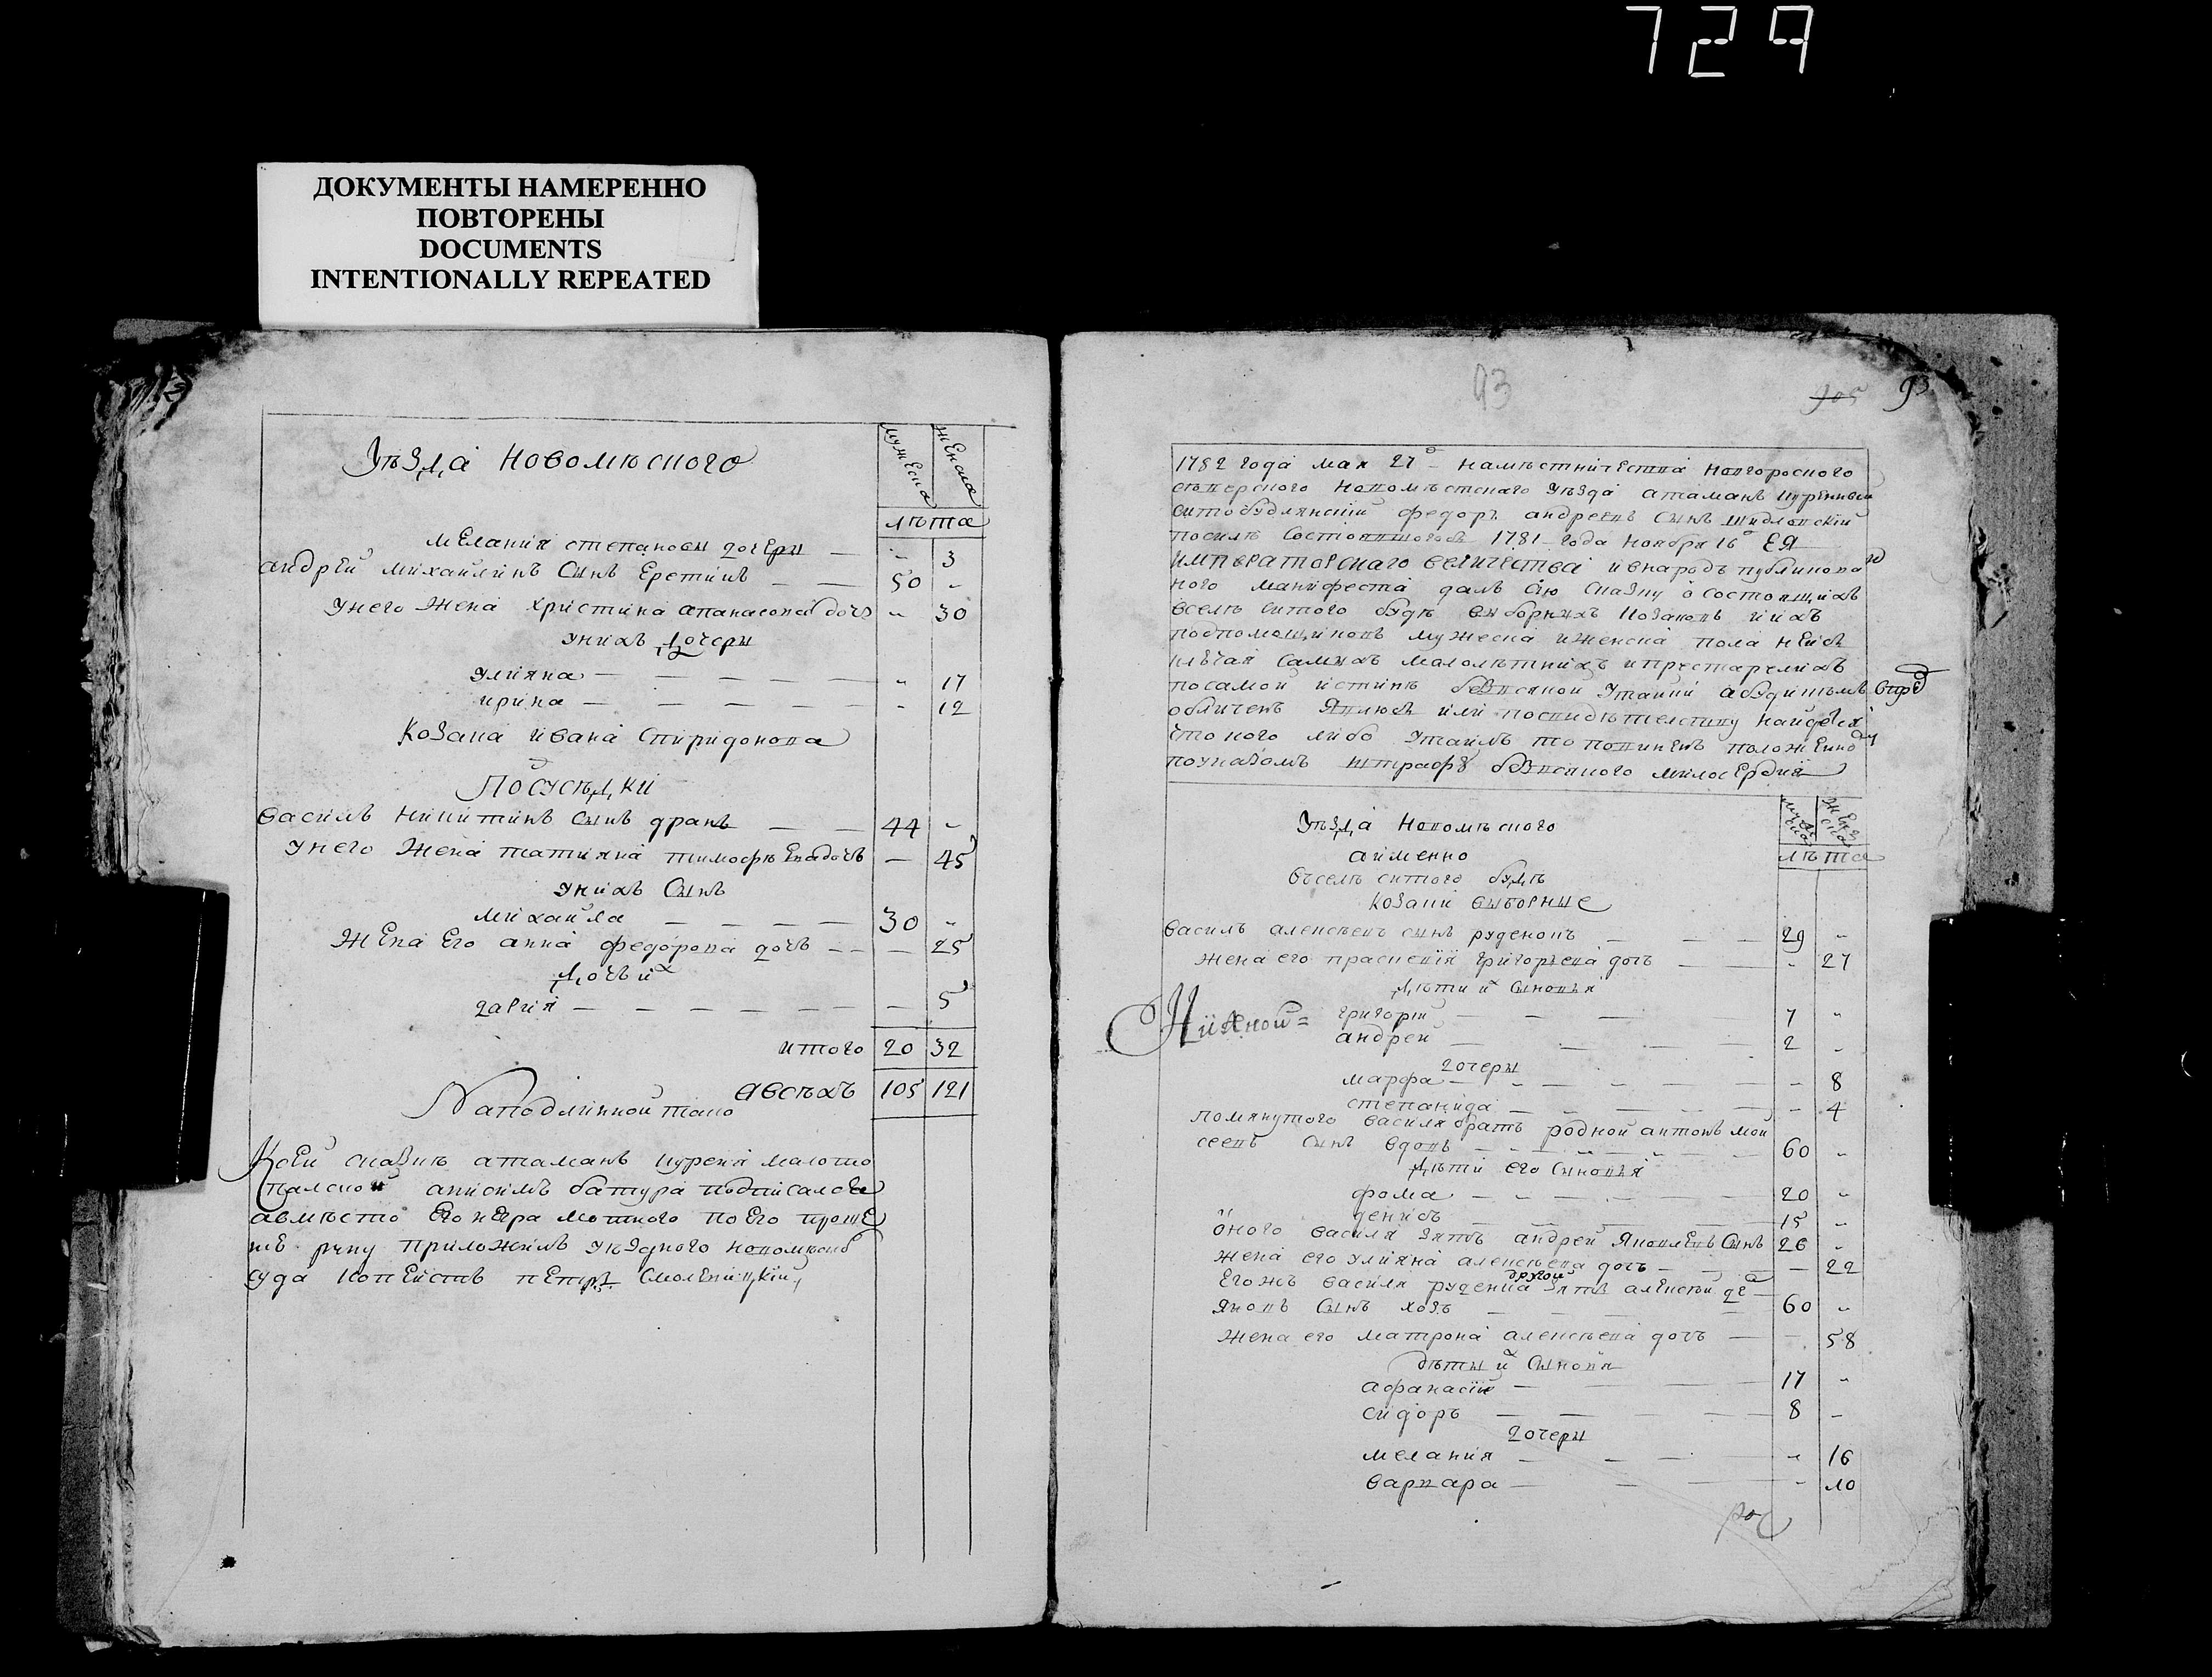 729
ДОКУМЕНТЫ НАМЕРЕННО
ПОВТОРЕНЫ
DOCUMENTS
INTENTIONALLY REPEATED
Уѣзда новомѣского
мужеска женска
лѣта
мелания степановы дочери — 3
андрей михайлинъ сынъ еретикъ — 50
у него жена христина апанасова дочь — 30
у нихъ дочери
улияна — 17
ирина — 12
козака ивана спиридонова
посусѣдки
василь никитинъ сынъ дракъ — 44
у него жена татияна тимофѣева дочь — 45
у нихъ сынъ
михайла — 30
жена его анна федорова дочь — 25
дочь их
дария — 5
итого 20 32
а всѣхъ 105 121
На подлинной тако
К сей сказкѣ атаманъ куреня малото
пальской анисимъ батура подписался
а вместо его неграмотного по его проше
нию руку приложилъ уѣздного новомѣск
суда копеистъ петръ смоленицкий
93
905 93
1782 года мая 27 намѣстничества новгородского
сѣверского новомѣстского уѣзда атаманъ куренный
ситобудлянский федоръ андреевъ сынъ шидловский
посилѣ состоявшогося 1781 года ноября 16 ЕЯ
императорского величества и в народъ публикова
ного манифеста далъ сию сказку о состоящихъ
в селѣ ситого будѣ выборныхъ козаковъ и ихъ
подпомощиковъ мужеска и женска пола не ис
ключая самыхъ малолѣтнихъ и престарелихъ
по самой истинѣ без всякой утайки а буди чимъ впред
обличенъ явлюсь или по свидѣтелству найдется
что кого либо утаилъ то повиненъ положенно
по указомъ штрафу без всякого милосердия
Уѣзда новомѣского
а именно
в селѣ ситого будѣ
козаки выборные
мужеска женска
лѣта
василь алексѣевъ сынъ руденокъ — 29
жена его праскевия григорьева дочь — 27
дѣти их сыновья
григорий — 7
андрей — 2
дочери
марфа — 8
степанида — 4
помянутого василя братъ родной антонъ мой
сеевъ сынъ вдовъ — 60
дѣти его сыновья
фома — 20
денисъ — 15
оного василя зять андрей яковлевъ сынъ 26
жена его улияна алексѣева дочь — 22
его жъ василя руденка другой зять алексей де
яковъ сынъ — 60
жена его матрона алексѣева дочь — 58
дѣты их сыновя
афанасий — 17
сидоръ — 8
дочери
мелания — 16
варвара — 10